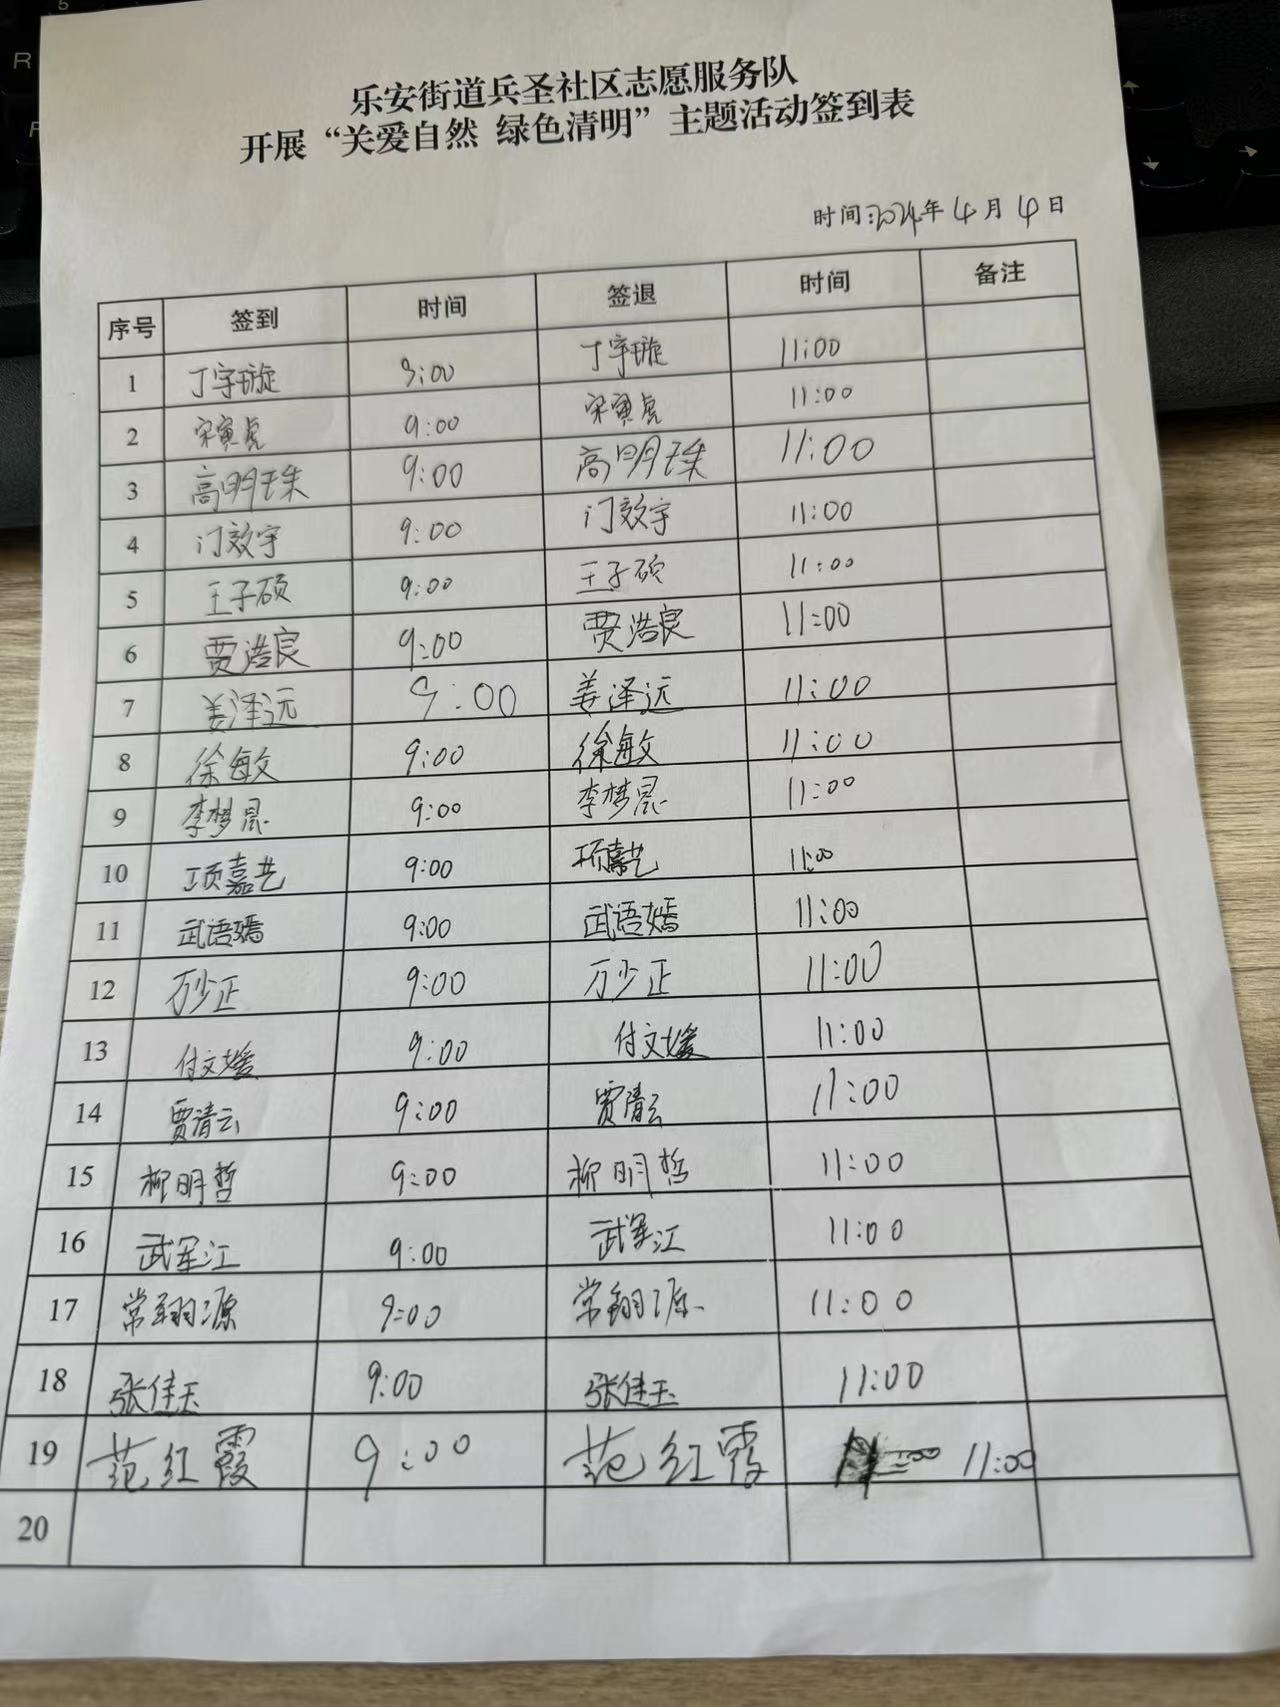 乐安街道兵圣社区志愿服务队
开展“关爱自然 绿色清明”主题活动签到表
时间:2024年4月4日
序号 签到 时间 签退 时间 备注
1 丁宇璇 9:00 丁宇璇 11:00
2 宋寅虎 9:00 宋寅虎 11:00
3 高明珠 9:00 高明珠 11:00
4 门效宇 9:00 门效宇 11:00
5 王子硕 9:00 王子硕 11:00
6 贾浩良 9:00 贾浩良 11:00
7 姜泽远 9:00 姜泽远 11:00
8 徐敏 9:00 徐敏 11:00
9 李梦晨 9:00 李梦晨 11:00
10 项嘉艺 9:00 项嘉艺 11:00
11 武语嫣 9:00 武语嫣 11:00
12 万少正 9:00 万少正 11:00
13 付文媛 9:00 付文媛 11:00
14 贾清云 9:00 贾清云 11:00
15 柳明哲 9:00 柳明哲 11:00
16 武军江 9:00 武军江 11:00
17 常翔源 9:00 常翔源 11:00
18 张佳玉 9:00 张佳玉 11:00
19 范红霞 9:00 范红霞 11:00
20